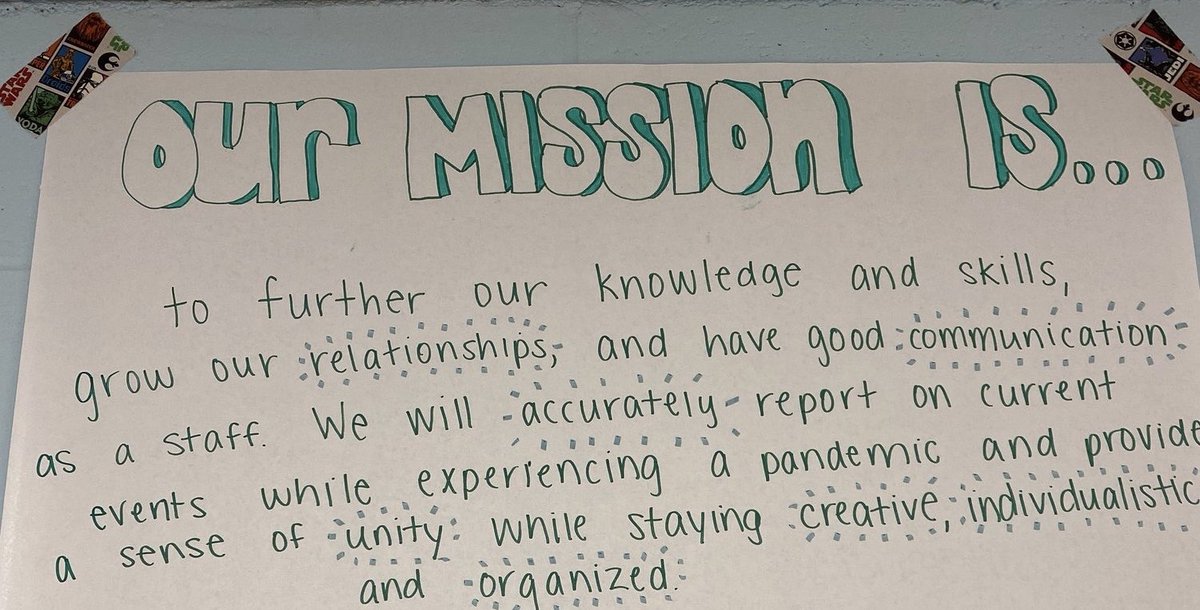 STAR WARS
YODA
JEDI
STAR WARS
OUR MISSION IS...
to further our knowledge and skills,
grow our relationships, and have good communication
as a staff. We will accurately report on current
events while experiencing a pandemic and provide
a sense of unity while staying creative, individualistic
and organized.